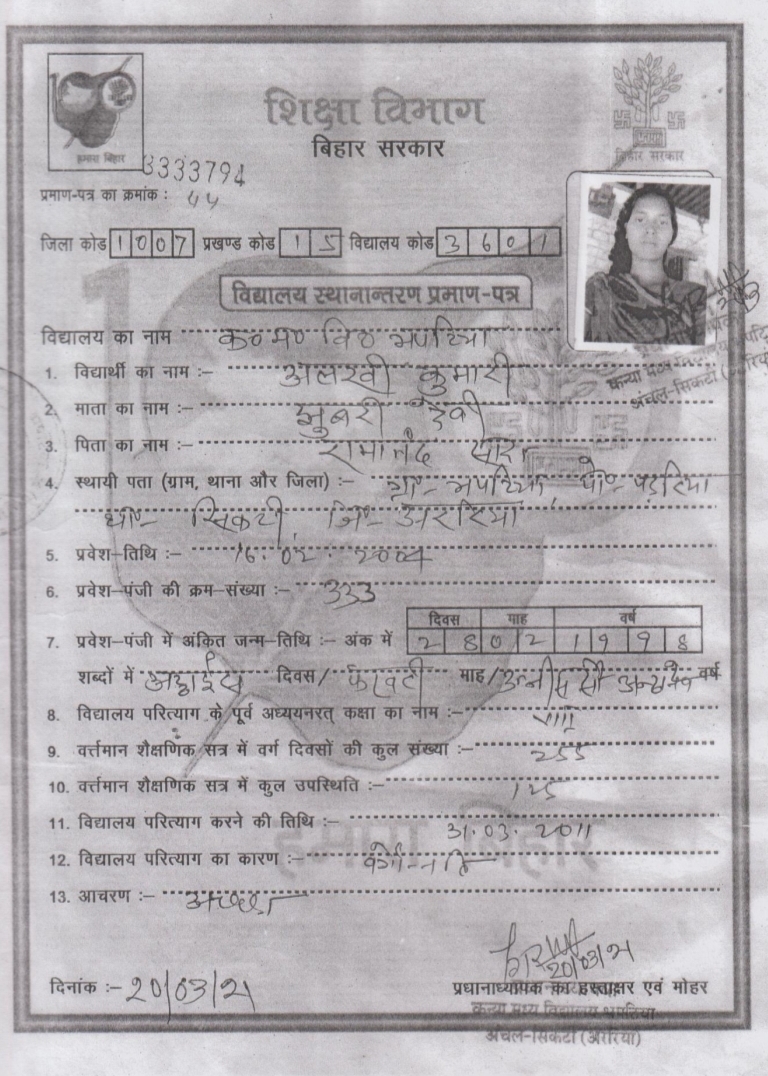 शिक्षा विभाग
बिहार सरकार
हमारा बिहार
बिहार सरकार
3333794
प्रमाण-पत्र का क्रमांक : 44
जिला कोड 1007 प्रखण्ड कोड 15 विद्यालय कोड 3601
विद्यालय स्थानान्तरण प्रमाण-पत्र
विद्यालय का नाम क० म० वि०
1. विद्यार्थी का नाम :- अलखी कुमारी
2. माता का नाम :- झुबरी देवी
3. पिता का नाम :- रामानंद
4. स्थायी पता (ग्राम, थाना और जिला) :- ग्रा०- पो०- पड़रिया
था०- सिकटी जि०- अररिया
5. प्रवेश-तिथि :- 16.02.2004
6. प्रवेश-पंजी की क्रम-संख्या :- 333
दिवस माह वर्ष
7. प्रवेश-पंजी में अंकित जन्म-तिथि :- अंक में 28 02 1998
शब्दों में अठ्ठाईस दिवस/ फरवरी माह/ उन्नीस सौ वर्ष
8. विद्यालय परित्याग के पूर्व अध्ययनरत् कक्षा का नाम :- VIII
9. वर्त्तमान शैक्षणिक सत्र में वर्ग दिवसों की कुल संख्या :- 255
10. वर्त्तमान शैक्षणिक सत्र में कुल उपस्थिति :- 125
11. विद्यालय परित्याग करने की तिथि :- 31.03.2011
12. विद्यालय परित्याग का कारण :-
13. आचरण :- अच्छा
20/03/21
दिनांक :- 20/03/21
प्रधानाध्यापक का हस्ताक्षर एवं मोहर
कन्या मध्य विद्यालय
अंचल-सिकटी (अररिया)